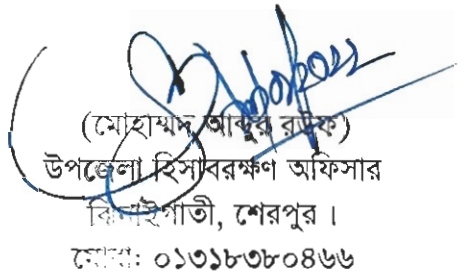 (মোহাম্মদ আব্দুর রউফ)
উপজেলা হিসাবরক্ষণ অফিসার
ঝিনাইগাতী, শেরপুর ।
মোবা: ০১৩১৮৩৮০৪৬৬